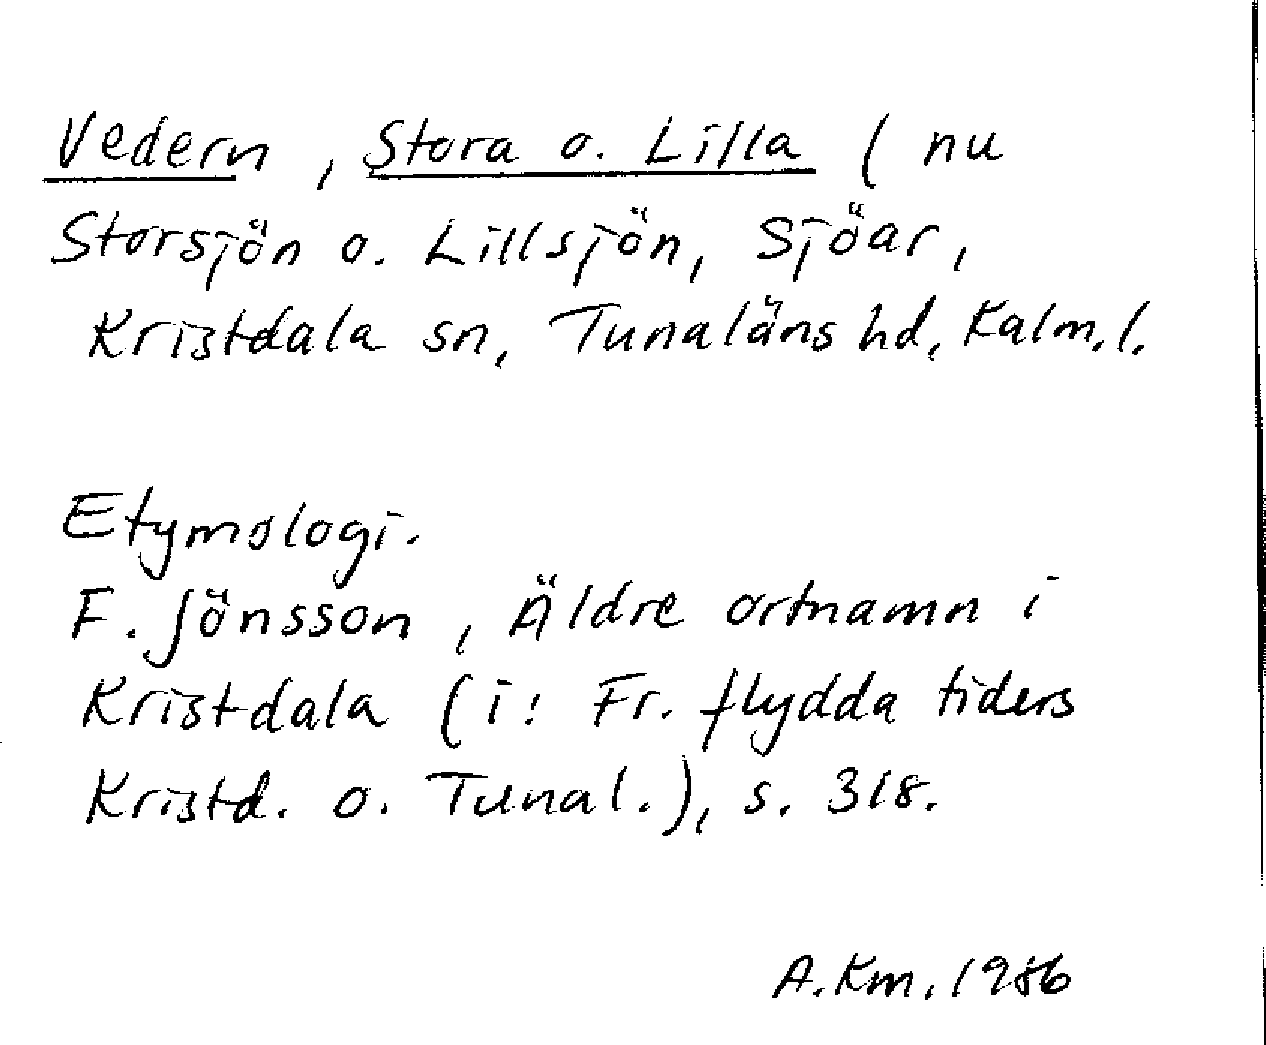 Vedern, Stora o. Lilla ( nu
Storsjön o. Lillsjön, Sjöar,
Kristdala sn, Tunaläns hd, Kalm. l.
Etymologi.
F. Jönsson, Äldre ortnamn i
Kristdala (i: Fr. flydda tiders
Kristd. o. Tunal.), s. 318.
A. Km. 1986